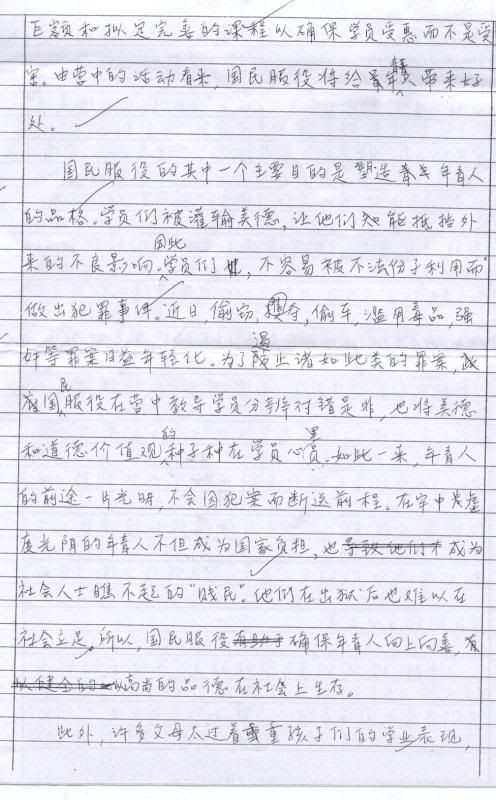 巨额和拟定完善的课程以确保学员受惠而不是受
害。由营中的活动看来,国民服役将给青年人带来好
处。
国民服役的其中一个主要目的是塑造年青人
的品格。学员们被灌输美德,让他们知能抵挡外
来的不良影响。因此学员们,不容易被不法份子利用而
做出犯罪事件。近日,偷窃,抢夺,偷车,滥用毒品,强
奸等罪案日益年轻化。为了遏止诸如此类的罪案,
国民服役在营中教导学员分辨对错是非,也将美德
和道德价值观的种子种在学员心里。如此一来,年青人
的前途一片光明,不会因犯案而断送前程。在牢中虚
度光阴的年青人不但成为国家负担,也成为
社会人士瞧不起的“贱民”。他们在出狱后也难以在
社会立足。所以,国民服役确保年青人向上向善,
以高尚的品德在社会上生存。
此外,许多父母太过着重孩子们的学业表现,